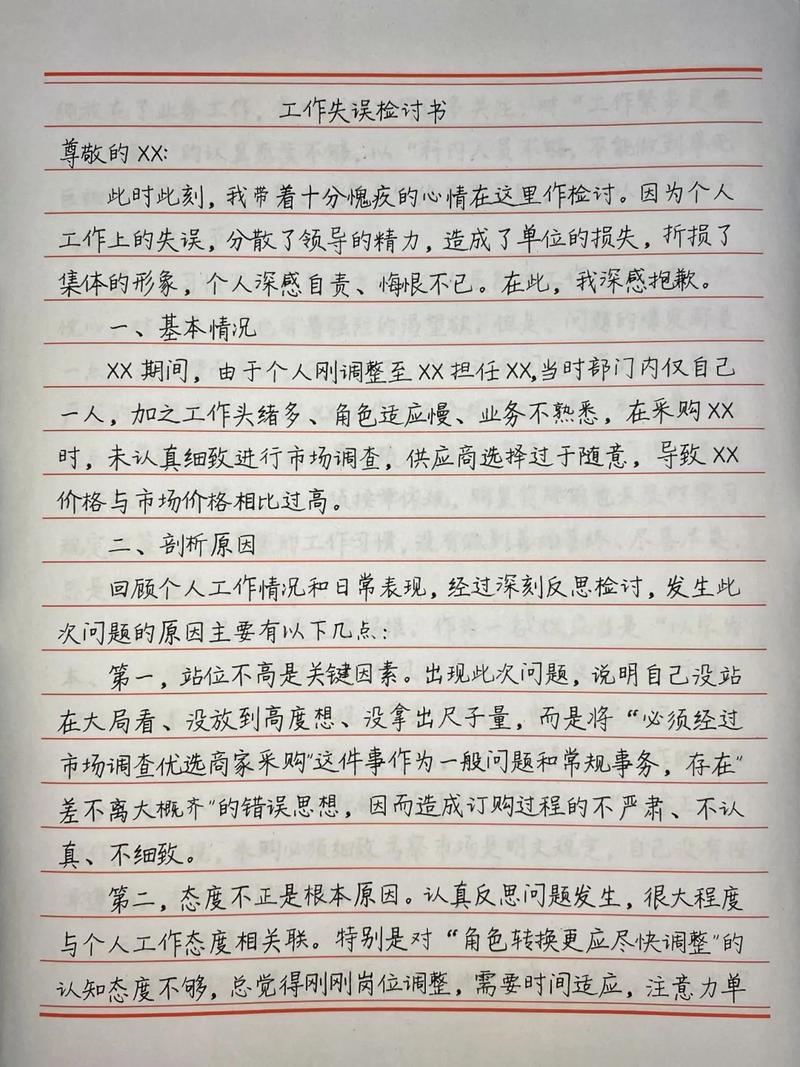 工作失误检讨书
尊敬的XX:
此时此刻，我带着十分愧疚的心情在这里作检讨。因为个人
工作上的失误，分散了领导的精力，造成了单位的损失，折损了
集体的形象，个人深感自责、悔恨不已。在此，我深感抱歉。
一、基本情况
XX期间，由于个人刚调整至XX担任XX,当时部门内仅自己
一人，加之工作头绪多、角色适应慢、业务不熟悉，在采购XX
时，未认真细致进行市场调查，供应商选择过于随意，导致XX
价格与市场价格相比过高。
二、剖析原因
回顾个人工作情况和日常表现，经过深刻反思检讨，发生此
次问题的原因主要有以下几点:
第一，站位不高是关键因素。出现此次问题，说明自己没站
在大局看、没放到高度想、没拿出尺子量，而是将“必须经过
市场调查优选商家采购”这件事作为一般问题和常规事务，存在“
差不离大概齐”的错误思想，因而造成订购过程的不严肃、不认
真、不细致。
第二，态度不正是根本原因。认真反思问题发生，很大程度
与个人工作态度相关联。特别是对“角色转换更应尽快调整”的
认知态度不够，总觉得刚刚岗位调整，需要时间适应，注意力单